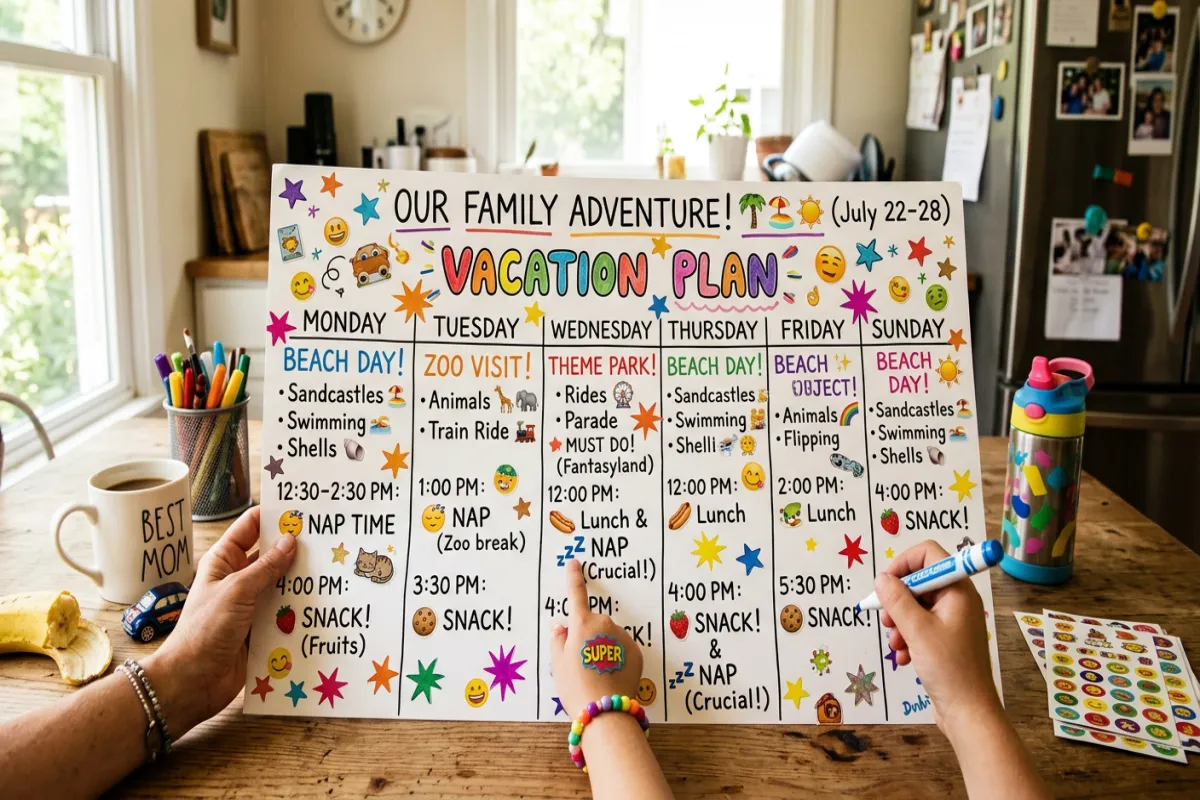 OUR FAMILY ADVENTURE! (July 22-28)
VACATION PLAN
MONDAY
BEACH DAY!
• Sandcastles
• Swimming
• Shells
12:30-2:30 PM:
NAP TIME
4:00 PM:
SNACK!
(Fruits)
TUESDAY
ZOO VISIT!
• Animals
• Train Ride
1:00 PM:
NAP
(Zoo break)
3:30 PM:
SNACK!
WEDNESDAY
THEME PARK!
• Rides
• Parade
MUST DO!
(Fantasyland)
12:00 PM:
Lunch &
zzZ NAP
(Crucial!)
PM:
THURSDAY
BEACH DAY!
• Sandcastles
• Swimming
• Shelli
12:00 PM:
Lunch
4:00 PM:
SNACK!
&
zzZ NAP
(Crucial!)
FRIDAY
BEACH
OBJECT!
• Animals
• Flipping
2:00 PM:
Lunch
5:30 PM:
SNACK!
SUNDAY
BEACH
DAY!
• Sandcastles
• Swimming
• Shells
4:00 PM:
SNACK!
BEST
MOM
SUPER